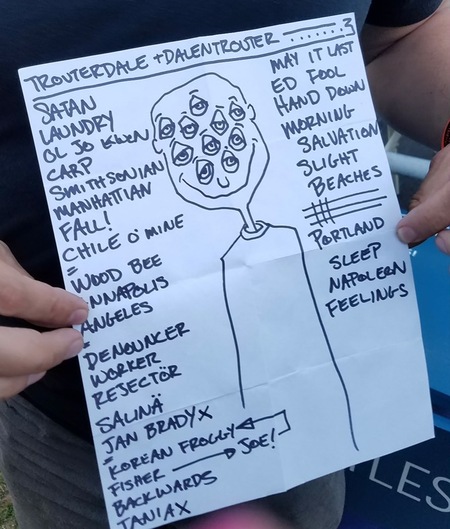 TROUTERDALE + DALENTROUTER ....... 3
SATAN
LAUNDRY
OL JO KWON
CARP
SMITHSONIAN
MANHATTAN
FALL!
CHILE O' MINE
=
WOOD BEE
ANNAPOLIS
ANGELES
=
DENOUNCER
WORKER
REJECTÖR
SALINÄ
JAN BRADY X
=
KOREAN FROGGY
FISHER → JOE!
BACKWARDS
TANIA X
MAY IT LAST
ED FOOL
HAND DOWN
MORNING
SALVATION
SLIGHT
BEACHES
PORTLAND
SLEEP
NAPOLEON
FEELINGS